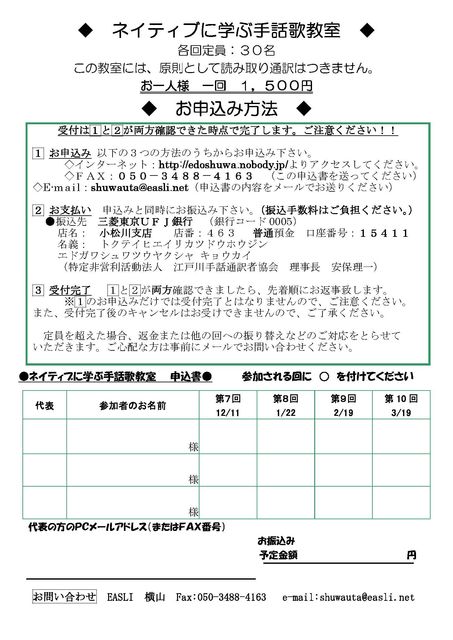 ◆ ネイティブに学ぶ手話歌教室 ◆
各回定員：３０名
この教室には、原則として読み取り通訳はつきません。
お一人様 一回 １，５００円
◆ お申込み方法 ◆
受付は1と2が両方確認できた時点で完了します。ご注意ください！！
1 お申込み 以下の３つの方法のうちからお申込み下さい。
◇インターネット：http://edoshuwa.nobody.jp/よりアクセスしてください。
◇ＦＡＸ：０５０－３４８８－４１６３ （この申込書を送ってください）
◇E-mail：shuwauta@easli.net（申込書の内容をメールでお送りください）
2 お支払い 申込みと同時にお振込み下さい。（振込手数料はご負担ください。）
●振込先 三菱東京ＵＦＪ銀行 （銀行コード0005）
店名： 小松川支店 店番：４６３ 普通預金 口座番号：１５４１１
名義： トクテイヒエイリカツドウホウジン
エドガワシュワツウヤクシャ キョウカイ
（特定非営利活動法人 江戸川手話通訳者協会 理事長 安保理一）
3 受付完了 1と2が両方確認できましたら、先着順にお返事致します。
※1のお申込みだけでは受付完了とはなりませんので、ご注意ください。
また、受付完了後のキャンセルはお受けできませんので、ご了承ください。
定員を超えた場合、返金または他の回への振り替えなどのご対応をとらせて
いただきます。ご心配な方は事前にメールでお問い合わせください。
●ネイティブに学ぶ手話歌教室 申込書● 参加される回に ○ を付けてください
代表 参加者のお名前 第7回 第8回 第9回 第10回
12/11 1/22 2/19 3/19
様
様
様
代表の方のPCメールアドレス（またはFAX番号）
お振込み
予定金額 円
お問い合わせ EASLI 横山 Fax:050-3488-4163 e-mail:shuwauta@easli.net